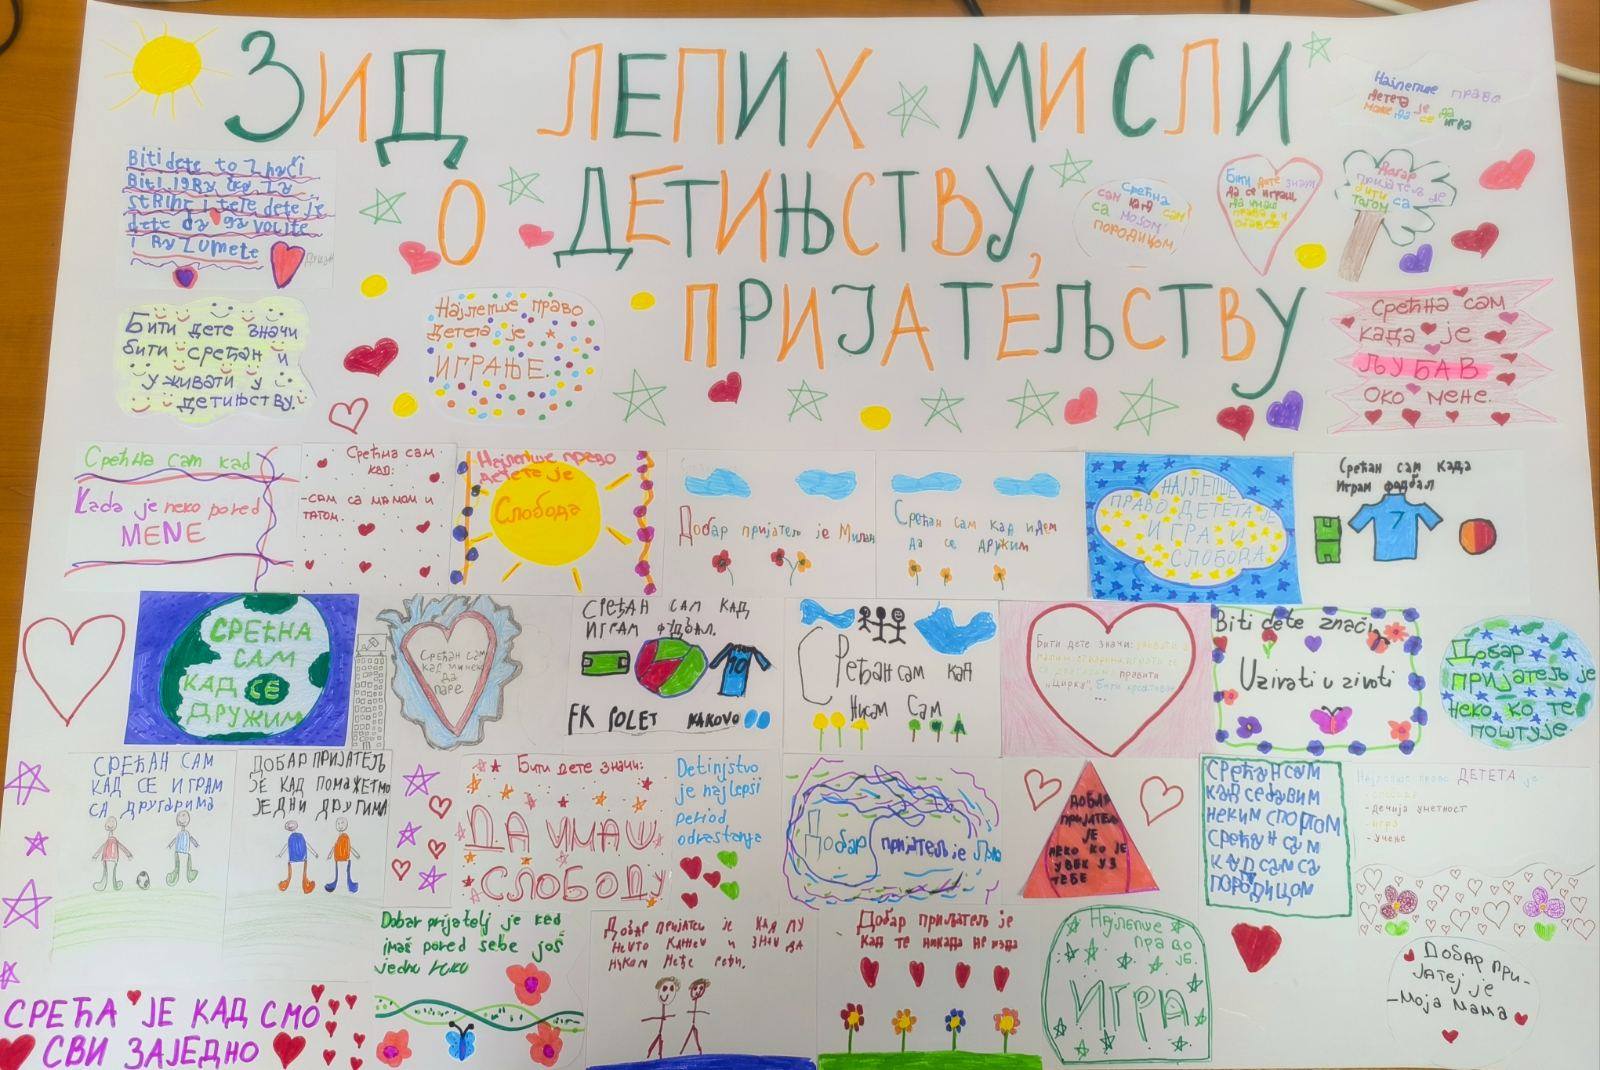 ЗИД ЛЕПИХ МИСЛИ
О ДЕТИЊСТВУ,
ПРИЈАТЕЉСТВУ
Најлепше право
детета је да
може да се игра
Biti dete to Znači
Biti igra
i tete dete je
dete da ga volite
i RaZumete
Срећна
сам кад сам
са мојом
породицом,
Бити дете значи
да се играш,
да имаш
права
Добар
пријатељ је
бити са
татом
Бити дете значи
бити срећан и
уживати у
детињству.
Најлепше право
детета је
ИГРАЊЕ.
Срећна сам
када је
ЉУБАВ
око мене.
Срећна сам kad
Kada je neko pored
MENE
Срећна сам
кад:
-сам са мамом и
татом.
Најлепше право
детета је
Слобода
Добар пријатељ је Милан
Срећан сам кад идем
да се дружим
НАЈЛЕПШЕ
ПРАВО ДЕТЕТА ЈЕ
ИГРА И
СЛОБОДА
Срећан сам када
Играм фудбал
7
СРЕЋНА
САМ
КАД СЕ
ДРУЖИМ
Срећан сам
кад
да
паре
СРЕЋАН САМ КАД
ИГРАМ ФУДБАЛ.
10
FK POLET
Срећан сам кад
Нисам Сам
Бити дете значи:
правити
„Цирку",
...
Biti dete znači
Uzivati u zivoti
Добар
пријатељ је
неко ко те
поштује.
СРЕЋАН САМ
КАД СЕ ИГРАМ
СА другарима
ДОБАР ПРИЈАТЕЉ
ЈЕ КАД ПОМАЖЕТМО
ЈЕДНИ ДРУГИМА
Бити дете значи:
ДА ИМАШ
СЛОБОДУ
Detinjstvo
je najlepši
period
odrastanja
Добар пријатељ је
ДОБАР
ПРИЈАТЕЉ
ЈЕ
НЕКО КО ЈЕ
УВЕК УЗ
ТЕБЕ
Срећан сам
кад се бавим
неким спортом
Срећан сам
кад сам са
породицом
Најлепше право ДЕТЕТА је:
- дечија уметност
- игра
- учење
Dobar prijatelj je kad
imaš pored sebe još
jednu
Добар пријатељ је КАД МУ
НЕШТО КАЖЕШ И ЗНАШ ДА
НИКОМ НЕЋЕ РЕЋИ.
Добар пријатељ је
кад те никада не изда
Најлепше
право
је
ИГРА
Добар при-
јатеј је
-Моја мама
СРЕЋА ЈЕ КАД СМО
СВИ ЗАЈЕДНО